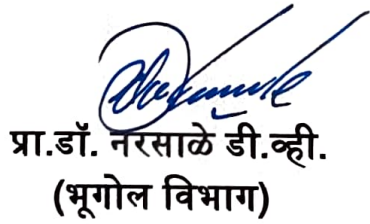 प्रा.डॉ. नरसाळे डी.व्ही.
(भूगोल विभाग)